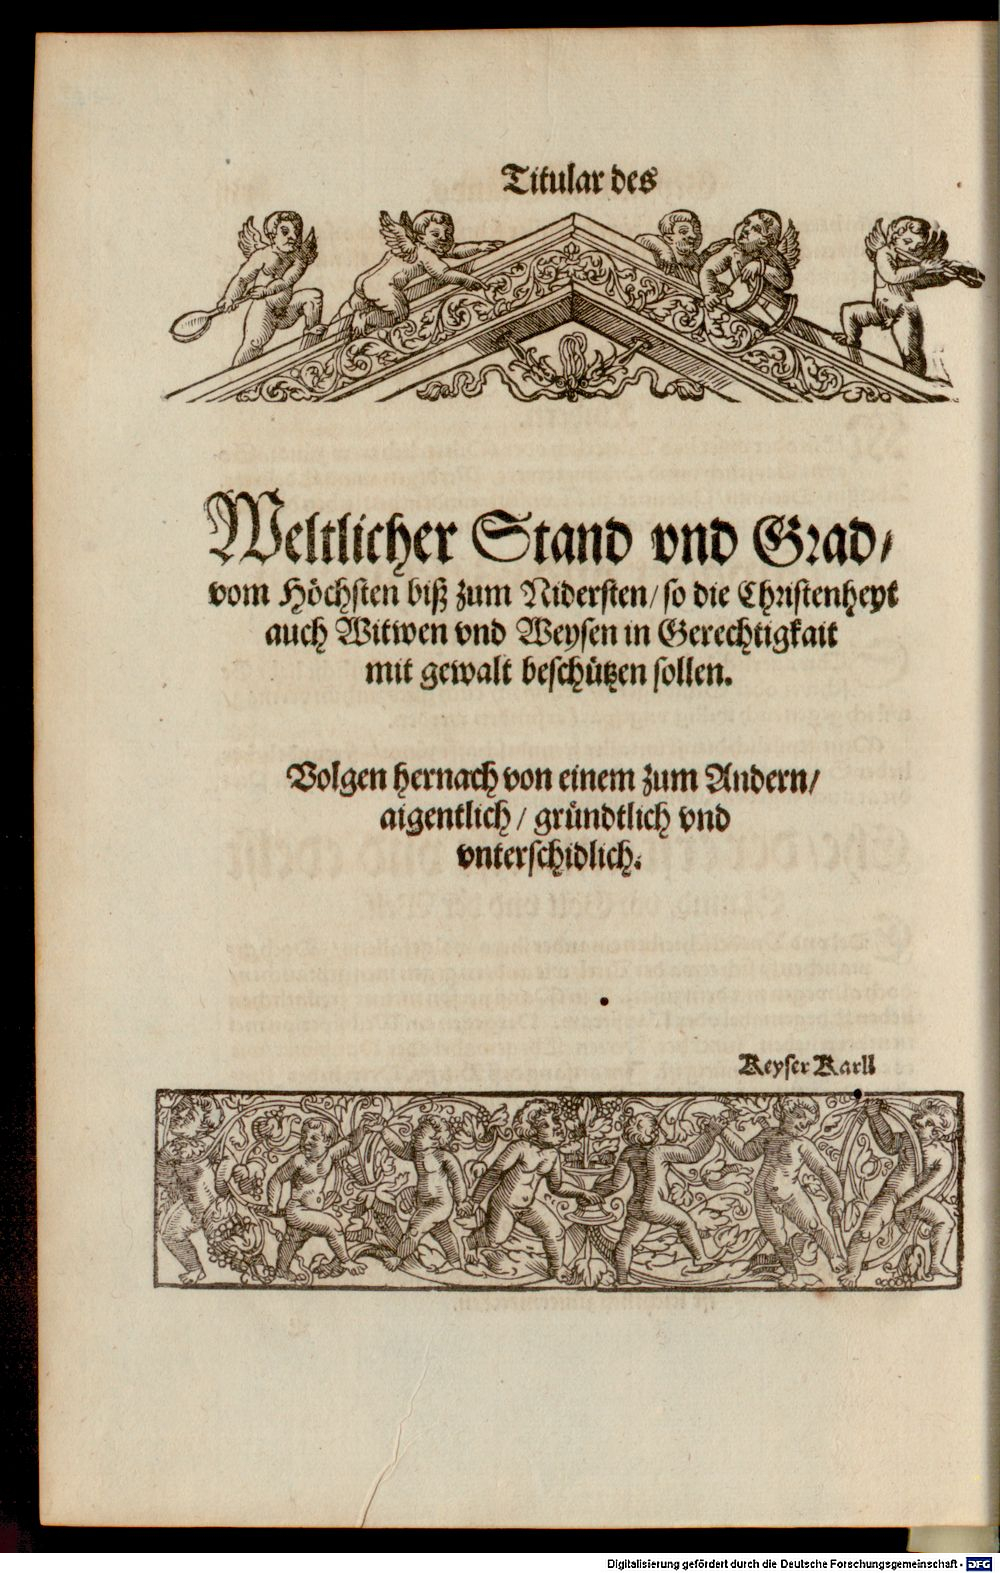 Titular des
Weltlicher Stand vnd Grad/
vom Höchsten biß zum Nidersten/ so die Christenheyt
auch Witwen vnd Weysen in Gerechtigkait
mit gewalt beschützen sollen.
Volgen hernach von einem zum Andern/
aigentlich/ gründtlich vnd
vnterschidlich.
Keyser Karll
Digitalisierung gefördert durch die Deutsche Forschungsgemeinschaft - DFG